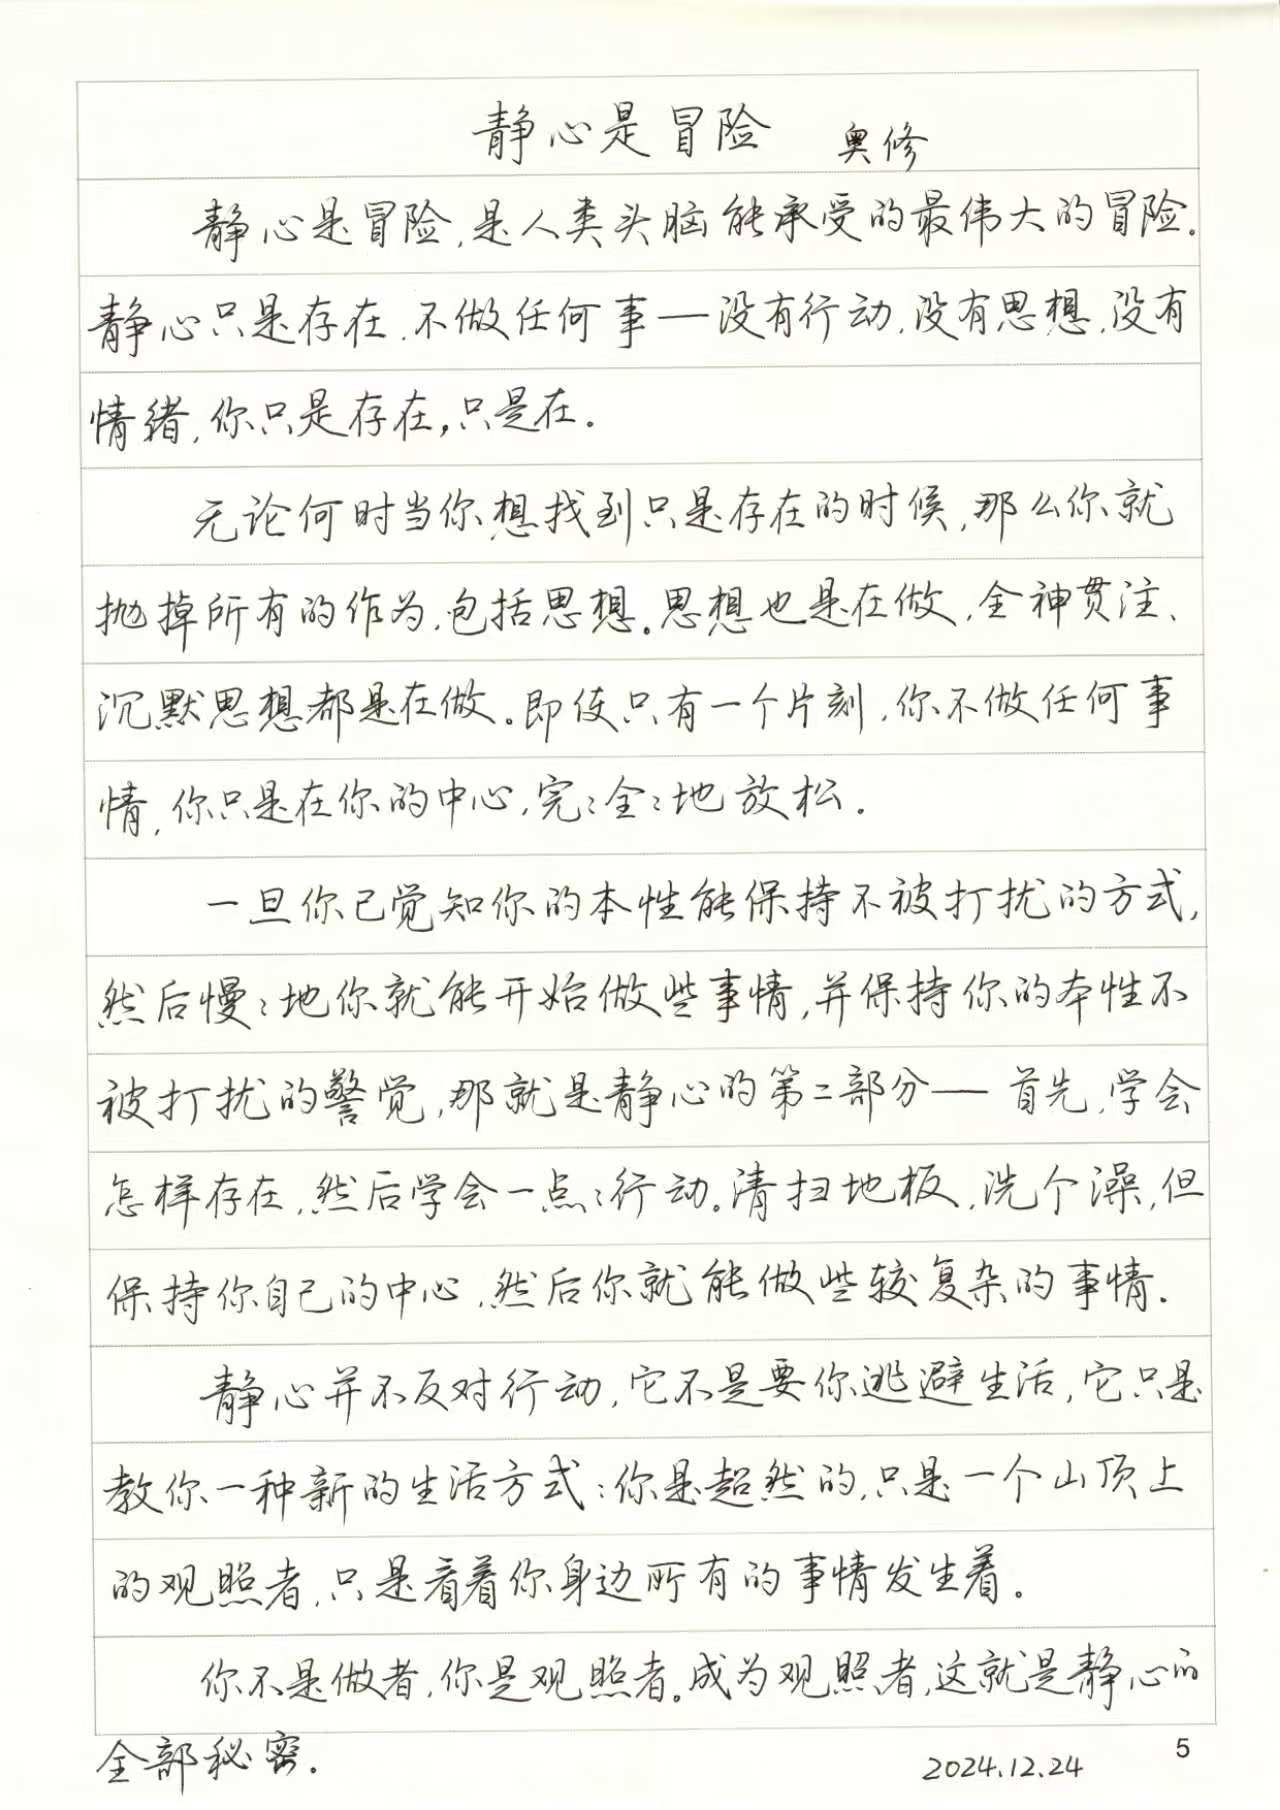 静心是冒险 奥修
静心是冒险,是人类头脑能承受的最伟大的冒险.
静心只是存在.不做任何事——没有行动,没有思想,没有
情绪,你只是存在,只是在.
无论何时当你想找到只是存在的时候,那么你就
抛掉所有的作为,包括思想。思想也是在做,全神贯注、
沉默思想都是在做。即使只有一个片刻,你不做任何事
情,你只是在你的中心,完:全:地放松.
一旦你已觉知你的本性能保持不被打扰的方式,
然后慢:地你就能开始做些事情,并保持你的本性不
被打扰的警觉,那就是静心的第二部分——首先,学会
怎样存在,然后学会一点:行动。清扫地板,洗个澡,但
保持你自己的中心,然后你就能做些较复杂的事情.
静心并不反对行动,它不是要你逃避生活,它只是
教你一种新的生活方式:你是超然的,只是一个山顶上
的观照者,只是看着你身边所有的事情发生着。
你不是做者,你是观照者。成为观照者,这就是静心的
全部秘密.
2024.12.24 5